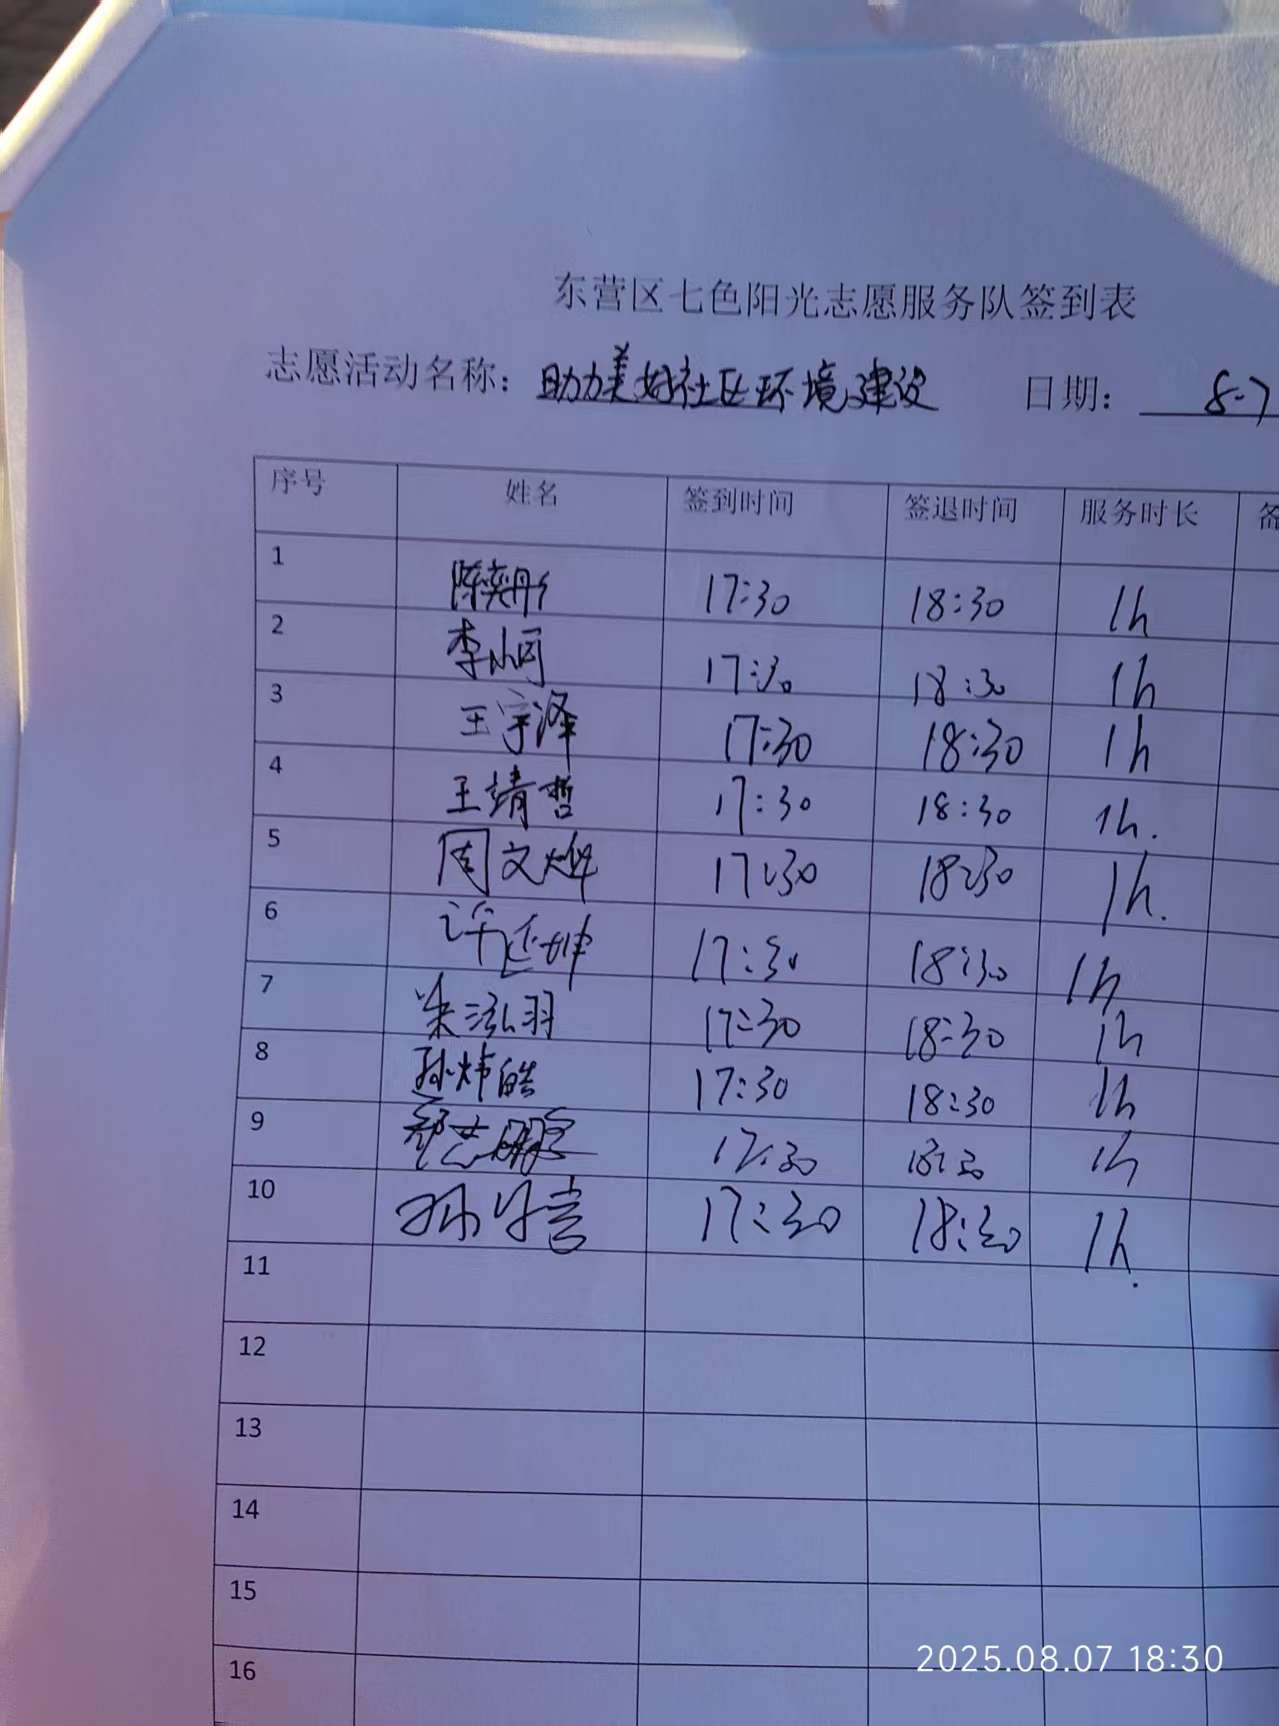 东营区七色阳光志愿服务队签到表
志愿活动名称：助力美好社区环境建设 日期：8-7
序号 姓名 签到时间 签退时间 服务时长 备
1 陈奕彤 17:30 18:30 1h
2 李小同 17:30 18:30 1h
3 王宇泽 17:30 18:30 1h
4 王靖哲 17:30 18:30 1h.
5 周文烨 17:30 18:30 1h.
6 许延坤 17:30 18:30 1h
7 朱泓羽 17:30 18:30 1h
8 孙炜皓 17:30 18:30 1h
9 17:30 18:30 1h
10 孙 17:30 18:30 1h.
11
12
13
14
15
16
2025.08.07 18:30